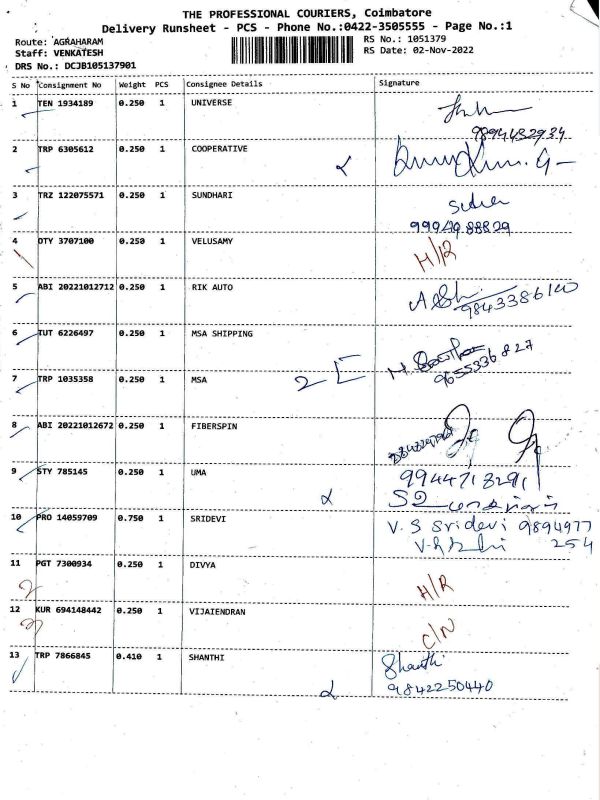 THE PROFESSIONAL COURIERS, Coimbatore
Delivery Runsheet - PCS - Phone No.:0422-3505555 - Page No.:1
Route: AGRAHARAM
RS No.: 1051379
Staff: VENKATESH
RS Date: 02-Nov-2022
DRS No.: DCJB105137901
S No Consignment No Weight PCS Consignee Details Signature
1 TEN 1934189 0.250 1 UNIVERSE
9894432934
2 TRP 6305612 0.250 1 COOPERATIVE
3 TRZ 122075571 0.250 1 SUNDHARI
99949 88829
4 OTY 3707100 0.250 1 VELUSAMY H/R
5 ABI 20221012712 0.250 1 RIK AUTO
9843386140
6 TUT 6226497 0.250 1 MSA SHIPPING
9655336827
7 TRP 1035358 0.250 1 MSA 2
8 ABI 20221012672 0.250 1 FIBERSPIN
9 STY 785145 0.250 1 UMA 9944713291
10 PRO 14059709 0.750 1 SRIDEVI V. S Sridevi 9894977
254
11 PGT 7300934 0.250 1 DIVYA H/R
12 KUR 694148442 0.250 1 VIJAIENDRAN C/N
13 TRP 7866845 0.410 1 SHANTHI Shanthi
9842250440